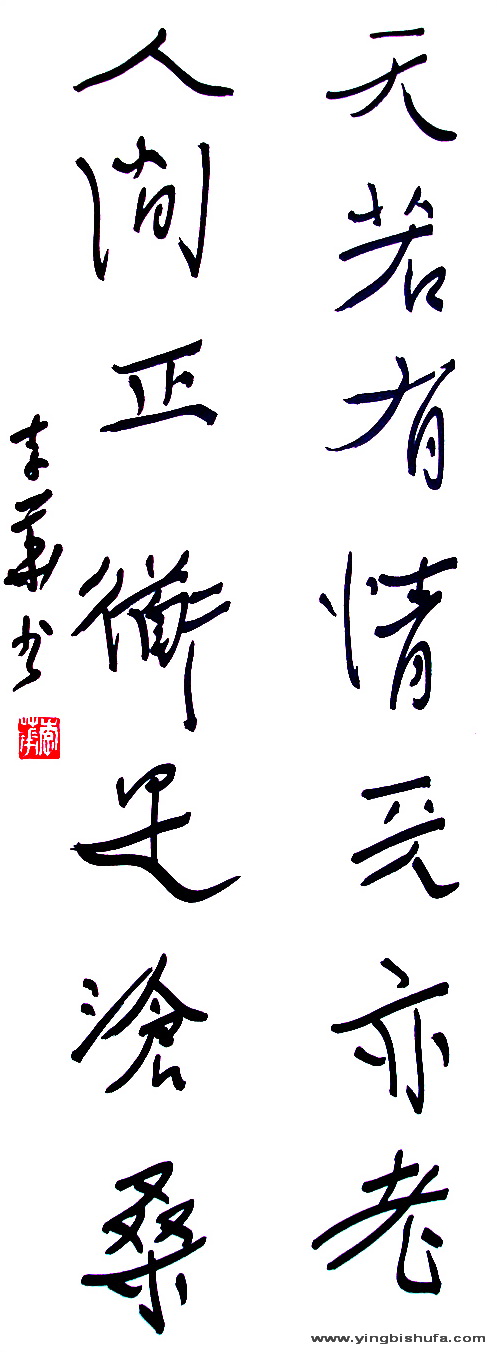 天若有情兲亦老
人間正衜是滄桑
李華书
李華
www.yingbishufa.com